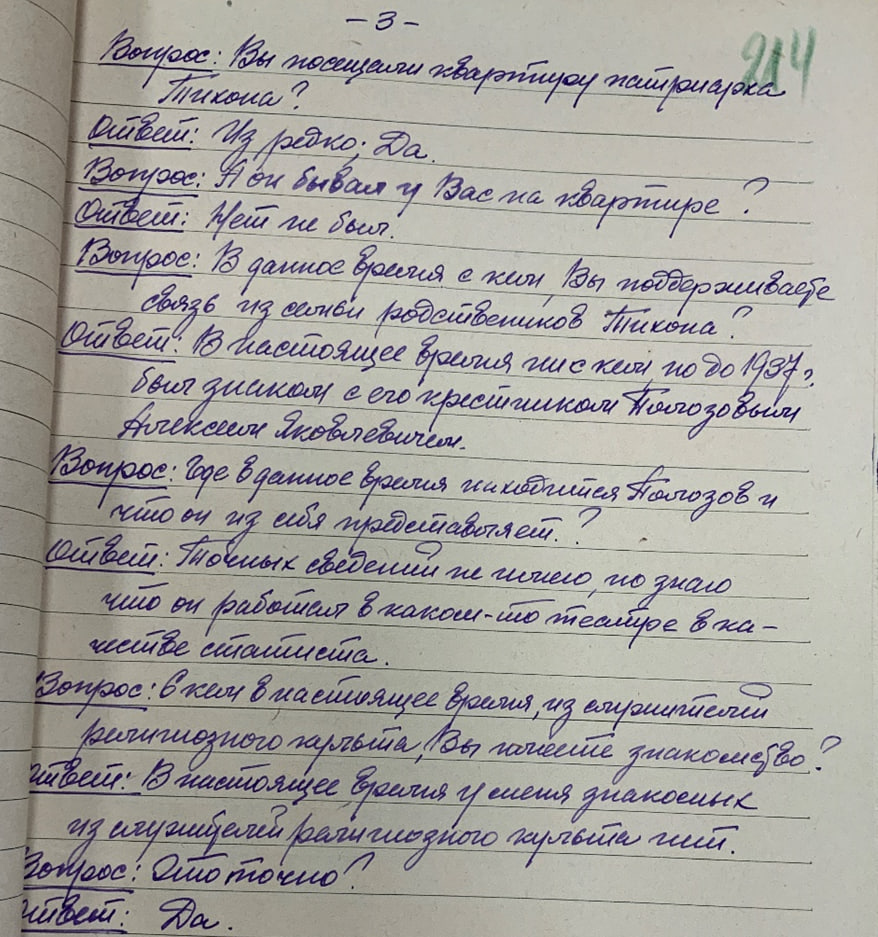 - 3 -
214
Вопрос: Вы посещали квартиру патриарха
Тихона?
Ответ: Из редко; Да.
Вопрос: А он бывал у Вас на квартире?
Ответ: Нет не был.
Вопрос: В данное время с кем, Вы поддерживаете
связь из семьи родствеников Тихона?
Ответ: В настоящее время ни с кем, но до 1937 г.
был знаком с его крестником Полозовым
Алексеем Яковлевичем.
Вопрос: Где в данное время находится Полозов и
что он из себя представляет.?
Ответ: Точных сведений не имею, но знаю
что он работал в каком-то театре в ка-
честве статиста.
Вопрос: С кем в настоящее время, из служителей
религиозного культа, Вы имеете знакомство?
Ответ: В настоящее время у меня знакомых
из служителей религиозного культа нет.
Вопрос: Это точно?
Ответ: Да.